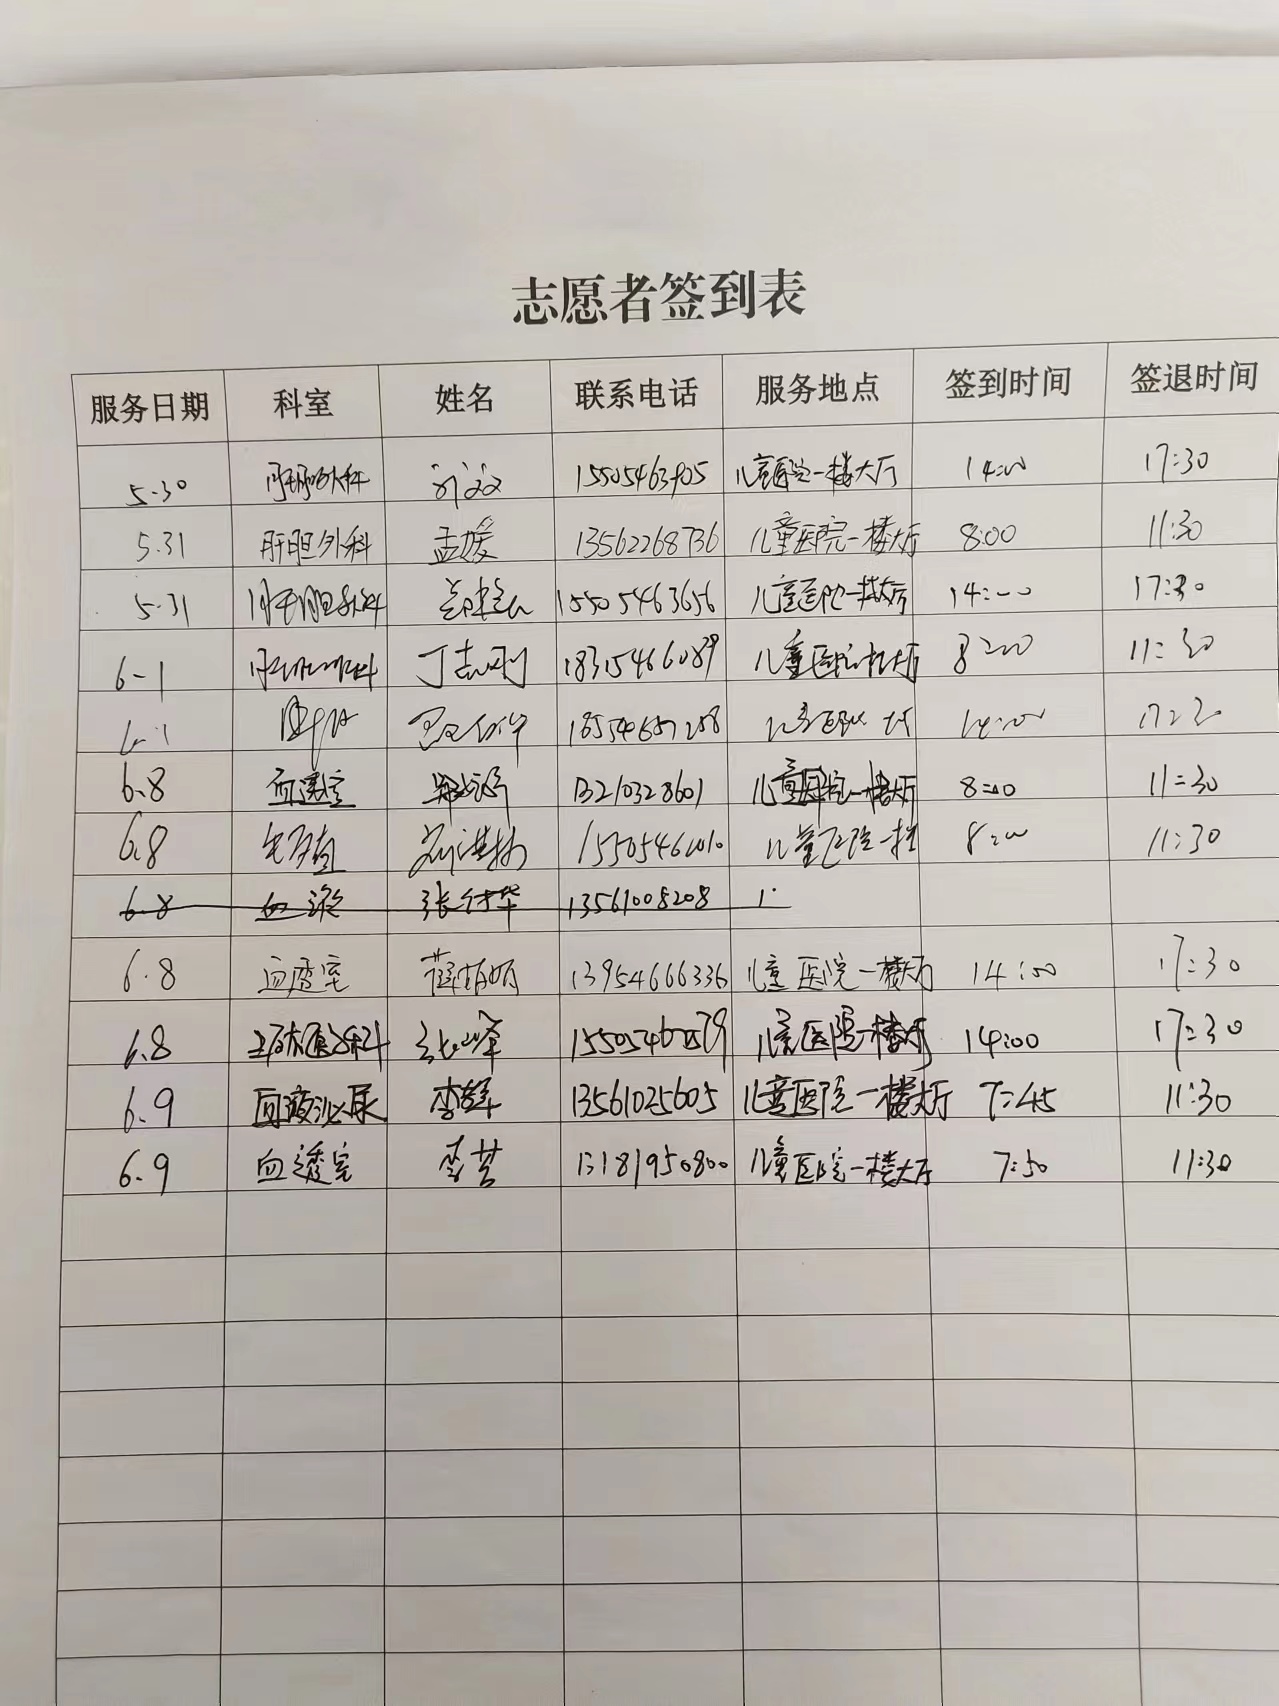 志愿者签到表
服务日期 科室 姓名 联系电话 服务地点 签到时间 签退时间
5.30 肝胆外科 15505463905 儿童医院一楼大厅 14:00 17:30
5.31 肝胆外科 孟媛 13562268736 儿童医院一楼大厅 8:00 11:30
5.31 肝胆外科 15505463656 儿童医院一楼大厅 14:00 17:30
6-1 肝胆外科 丁志刚 18315466089 儿童医院一楼大厅 8:00 11:30
14:00
6.8 血透室 13210328601 儿童医院一楼大厅 8:00 11:30
6.8 儿童医院一楼 8:00 11:30
6.8 血透 张付华 13561008208
6.8 血透室 薛萌萌 13954666336 儿童医院一楼大厅 14:00 17:30
6.8 张峰 儿童医院一楼大厅 14:00 17:30
6.9 血液泌尿 13561025605 儿童医院一楼大厅 7:45 11:30
6.9 血透室 李芸 13181950800 儿童医院一楼大厅 7:50 11:30